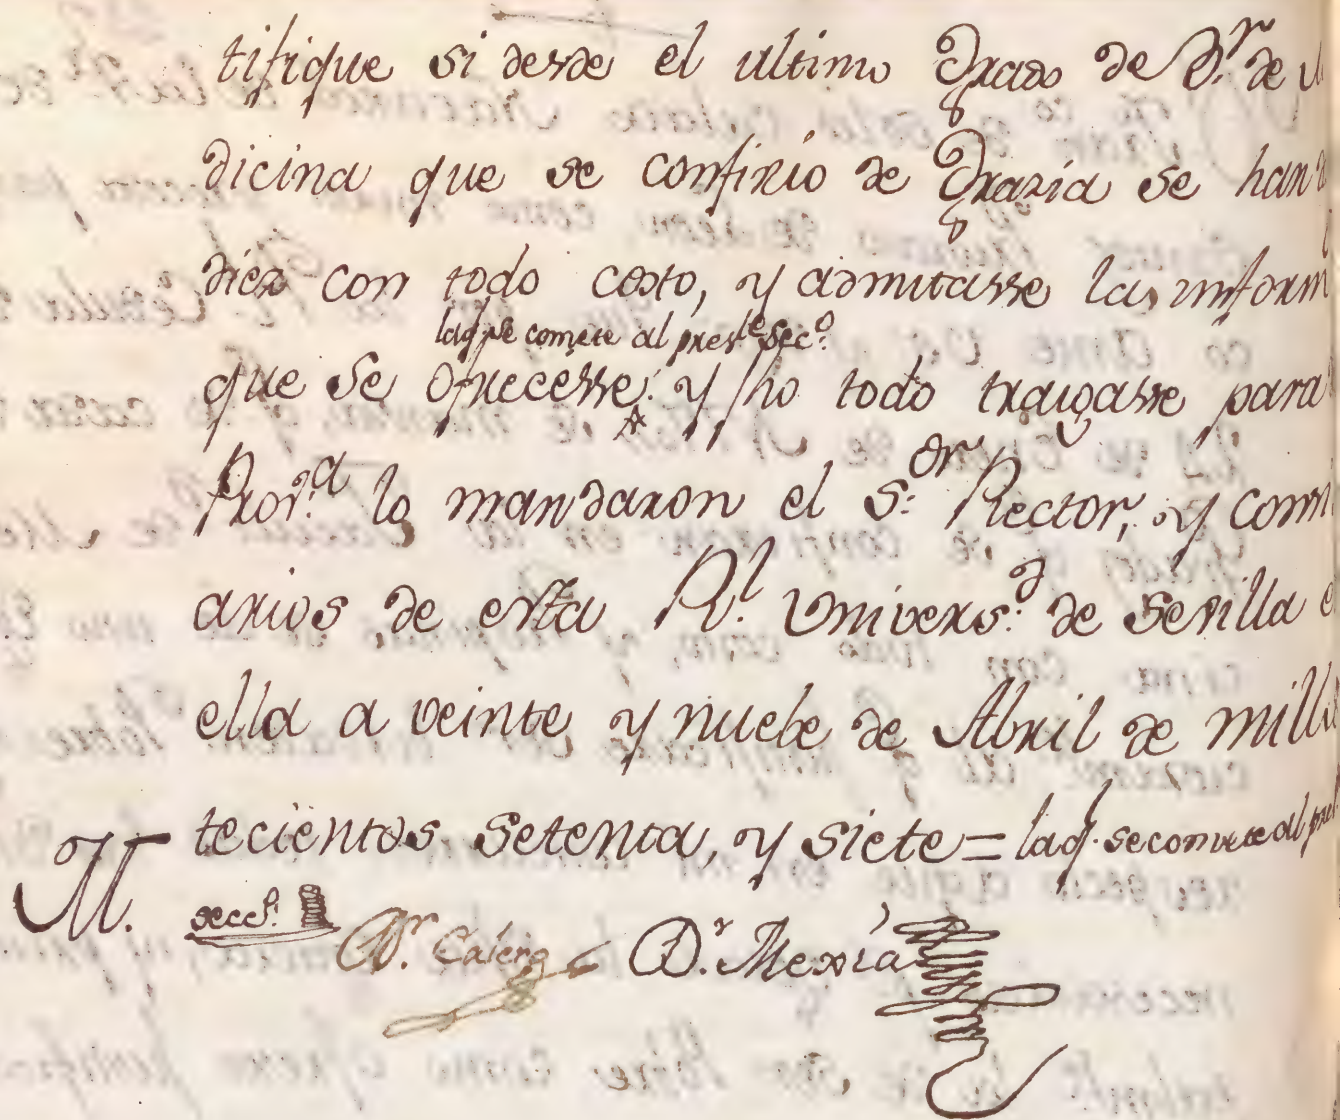 tifique si desde el ultimo Grado de D.r de M
dicina que se confirio de Grazia se han
diez con todo costo, y admitasse la inform
la q.e se comete al pres.te Sec.o
que se ofrecesse. y ho todo traigasse para
Prov.a lo mandaron el S.or Rector, y comi
arios de esta R.l Univers.d de Sevilla e
ella a veinte y nuebe de Abril de mill
tecientos setenta, y siete = la q. se comete al pres
M. secc.o
D.r Calero D.r Mexia